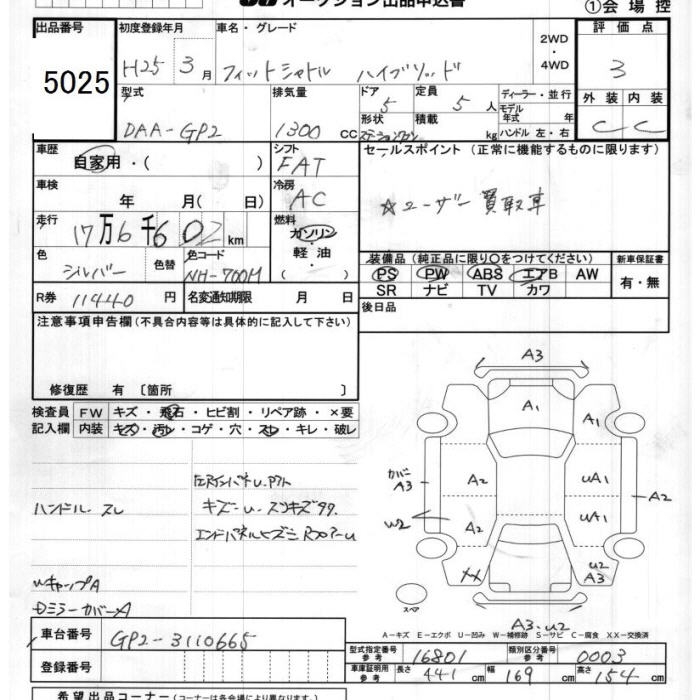 オークション出品申込書
①会場控
出品番号 初度登録年月 車名・グレード 2WD・4WD 評価点
5025 H25 3月 フィットシャトル ハイブリッド 3
型式 排気量 ドア 5 定員 5人 ディーラー・並行 外装 内装
DAA-GP2 1300cc 形状 ステーションワゴン 積載 kg モデル年式 年式 ハンドル 左・右 C C
車歴 自家用・( ) シフト FAT セールスポイント(正常に機能するものに限ります)
車検 年 月( 日) 冷房 AC ☆ユーザー買取車
走行 17万6千602km 燃料 ガソリン・軽油・( )
色 シルバー 色替 色コード NH-700M
装備品(純正品に限り○をつけてください) 新車保証書
PS PW ABS エアB AW 有・無
SR ナビ TV カワ
R券 11440円 名変通知期限 月 日 後日品
注意事項申告欄(不具合内容等は具体的に記入して下さい)
修復歴 有 〔箇所 〕
検査員 FW キズ・飛石・ヒビ割・リペア跡・×要
記入欄 内装 キズ・汚レ・コゲ・穴・スレ・キレ・破レ
ハンドル スレ
WキャップA
DミラーカバーA
A3
A1
A1
カバーA3
A2
UA1
A2
W2
A2
UA1
XX
U2
A3
スペア
A3・U2
A-キズ E-エクボ U-凹み W-補修跡 S-サビ C-腐食 XX-交換済
車台番号 GP2-3110665
登録番号
型式指定番号 参考 16801 類別区分番号 参考 0003
車庫証明用 参考 長さ 441cm 幅 169cm 高さ 154cm
希望出品コーナー(コーナーは各会場により異なります。)